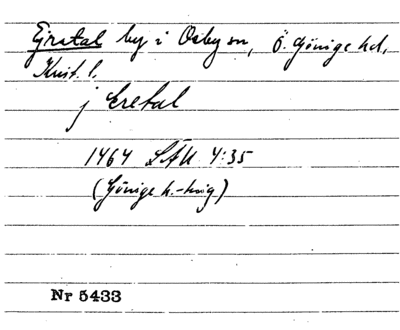 Ejretal by i Osby sn, Ö. Göinge hd,
Krist. l.
j Eretal
1464 LÄU 4:35
(Göinge h.-
Nr 5433